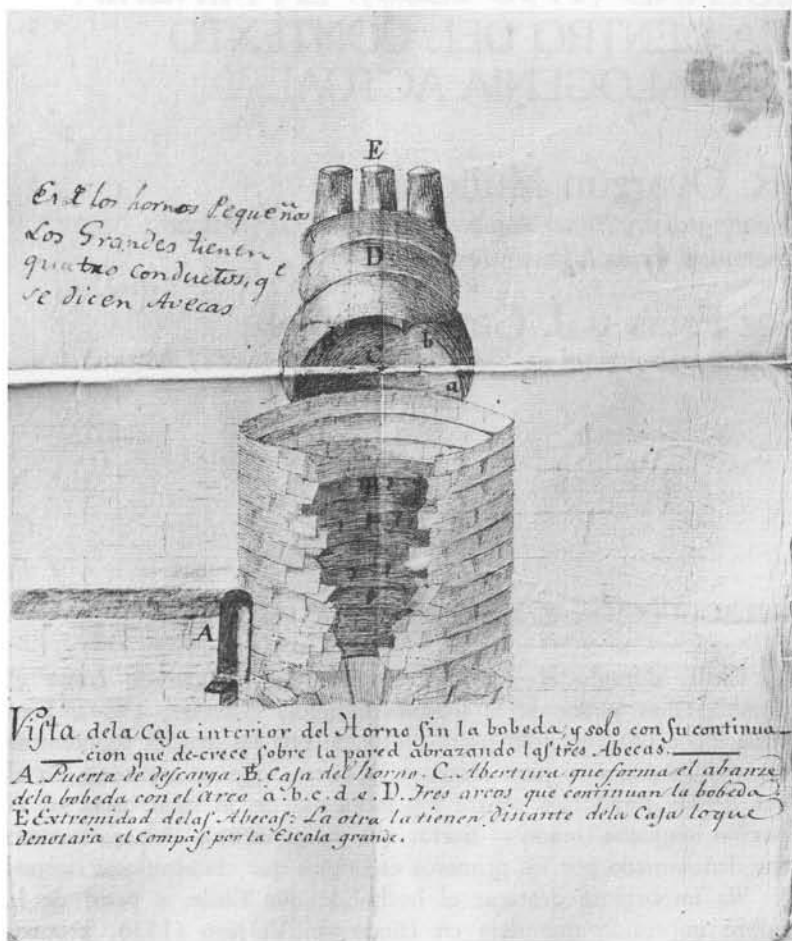 E
En los hornos Pequeños
Los Grandes tienen
quatro conductos, qe
se dicen Avecas
D.
d b
c
a
A
Vista dela Caja interior del Horno sin la bobeda, y solo con su continua
cion que de-crece sobre la pared abrazando las tres Abecas.
A. Puerta de descarga. B. Caja del horno. C. Abertura que forma el abanze
dela bobeda con el arco a. b. c. d. e. D. Tres arcos que continuan la bobeda.
E Extremidad delas Abecas: La otra la tienen distante dela Caja loque
denotara el Compás por la Escala grande.